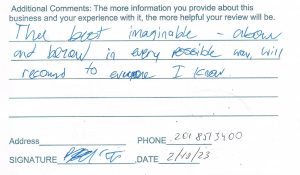 Additional Comments: The more information you provide about this
business and your experience with it, the more helpful your review will be.
The best imaginable - above
and beyond in every possible way, will
recomend to everyone I know.
Address PHONE 201 851 3400
SIGNATURE DATE 2/10/23